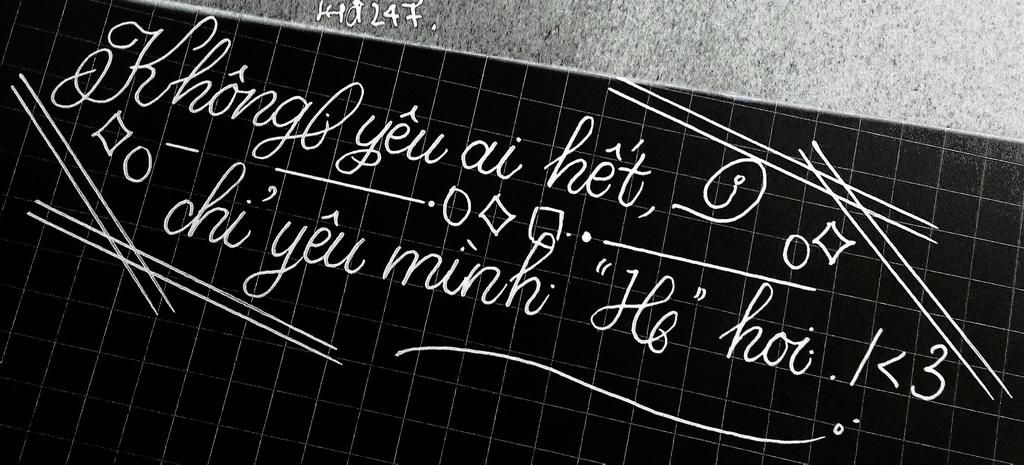 Không yêu ai hết,
chỉ yêu mình "H" hoi. /<3